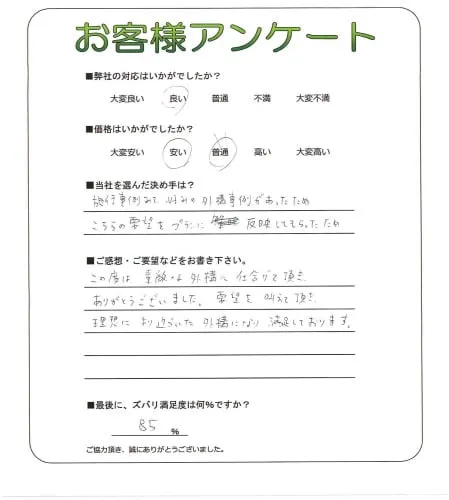 お客様アンケート
■弊社の対応はいかがでしたか?
大変良い 良い 普通 不満 大変不満
■価格はいかがでしたか?
大変安い 安い 普通 高い 大変高い
■当社を選んだ決め手は?
施行事例みて 好みの外構事例があったため
こちらの要望をプランに 反映してもらったため
■ご感想・ご要望などをお書き下さい。
この度は 素敵な外構に 仕上げて頂き
ありがとうございました。 要望を 叶えて頂き
理想に より近づいた 外構になり 満足しております。
■最後に、ズバリ満足度は何%ですか?
85 %
ご協力頂き、誠にありがとうございました。